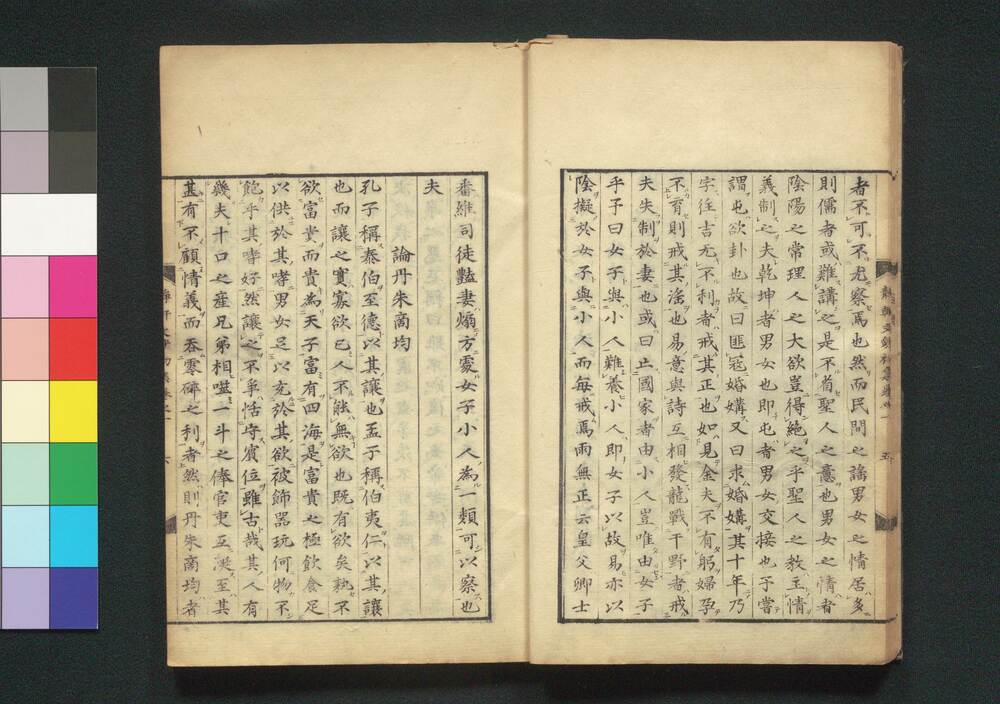 者不可不尤察焉也然而民間之謠男女之情居多
則儒者或難講之是不省聖人之意也男女之情者
陰陽之常理人之大欲豈得絶之乎聖人之教主情
義制之夫乾坤者男女也即屯者男女交接也予嘗
謂屯欲卦也故曰匪寇婚媾又曰求婚媾其十年乃
字往吉无不利者戒其正也如見金夫不有躬婦孕
不育則戒其淫也易意與詩互相發龍戰于野者戒
夫失制於妻也或曰止國家者由小人豈唯由女子
乎予曰女子與小人難養小人即女子以故易亦以
陰擬於女子與小人而每戒焉雨無正云皇父卿士
番維司徒豔妻煽方處女子小人為一類可以察也
夫
論丹朱商均
孔子稱泰伯至德以其讓也孟子稱伯夷仁以其讓
也而讓之實寡欲已人不能無欲也既有欲矣孰不
欲富貴而貴為天子富有四海是富貴之極飲食足
以供於其嗜男女足以充於其欲被飾器玩何物不
飽乎其嗜好然讓之不爭恬守賓位雖古哉其人有
幾夫十口之産兄弟相噬一斗之俸官吏互涎至其
甚有不顧情義而吞零碎之利者然則丹朱商均者
五
六